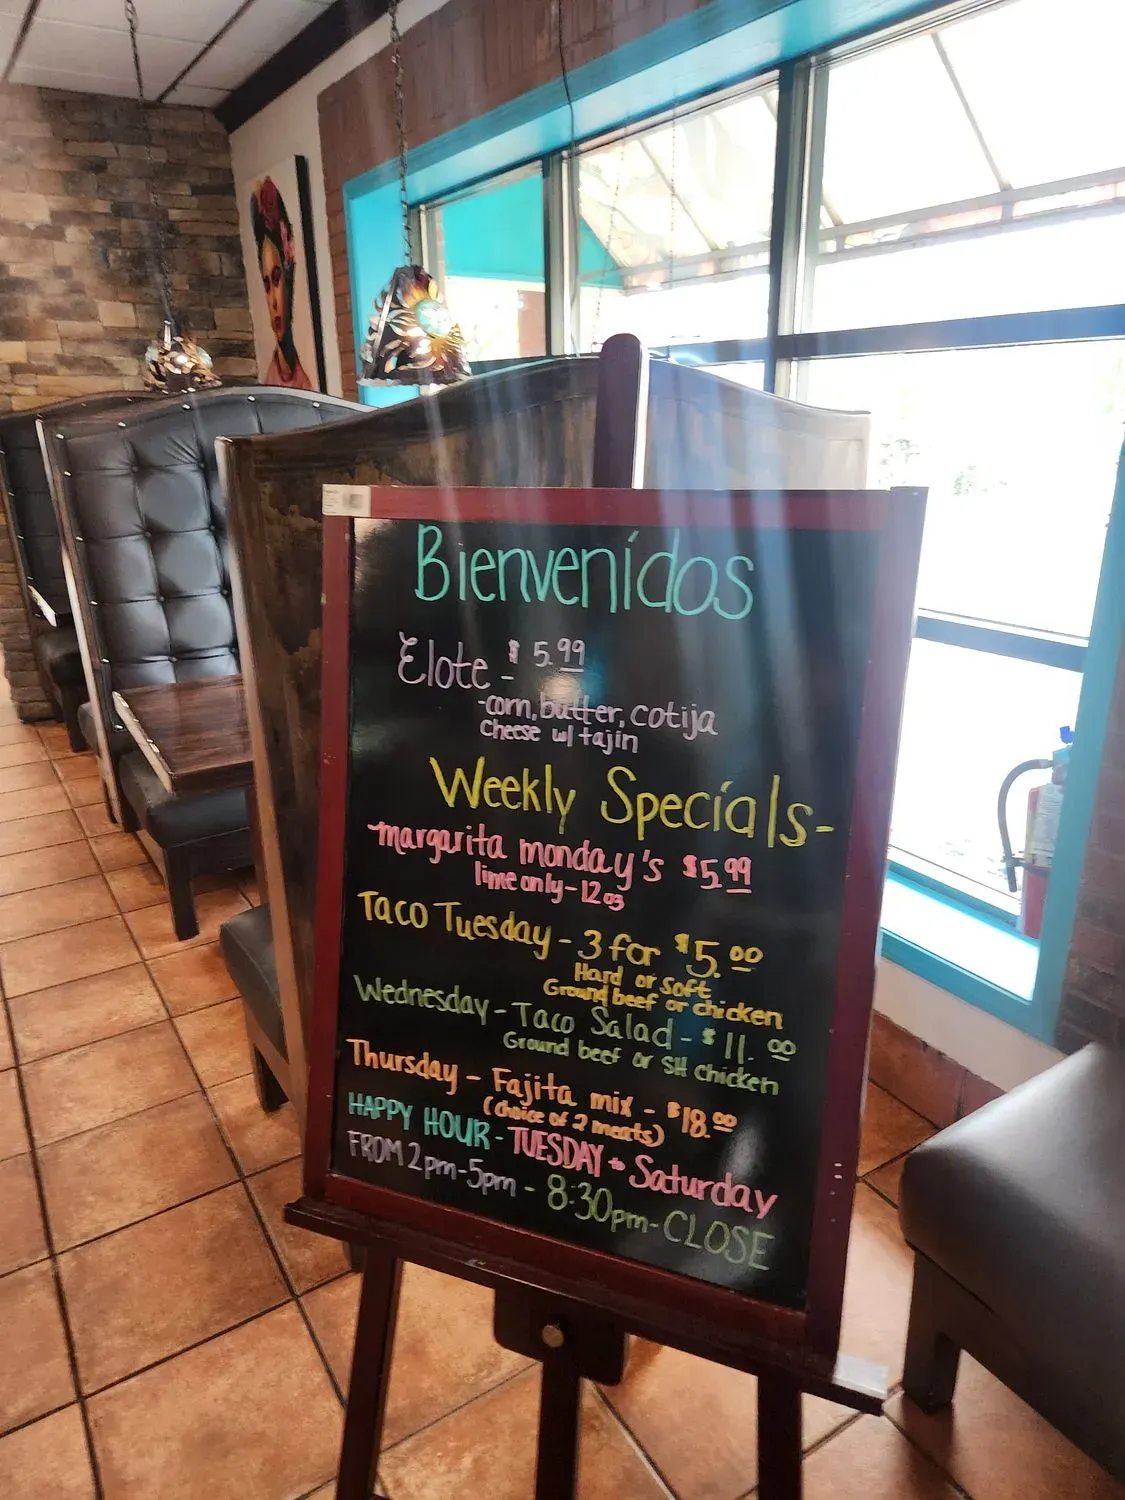 Bienvenidos
Elote - $5.99
-corn, butter, cotija
cheese w/ tajin
Weekly Specials-
-margarita monday's $5.99
lime only-12oz
Taco Tuesday - 3 for $5.00
Hard or soft
Ground beef or chicken
Wednesday - Taco Salad - $11.00
Ground beef or SH chicken
Thursday - Fajita mix - $18.00
(choice of 2 meats)
HAPPY HOUR - TUESDAY - Saturday
FROM 2pm-5pm - 8:30pm-CLOSE